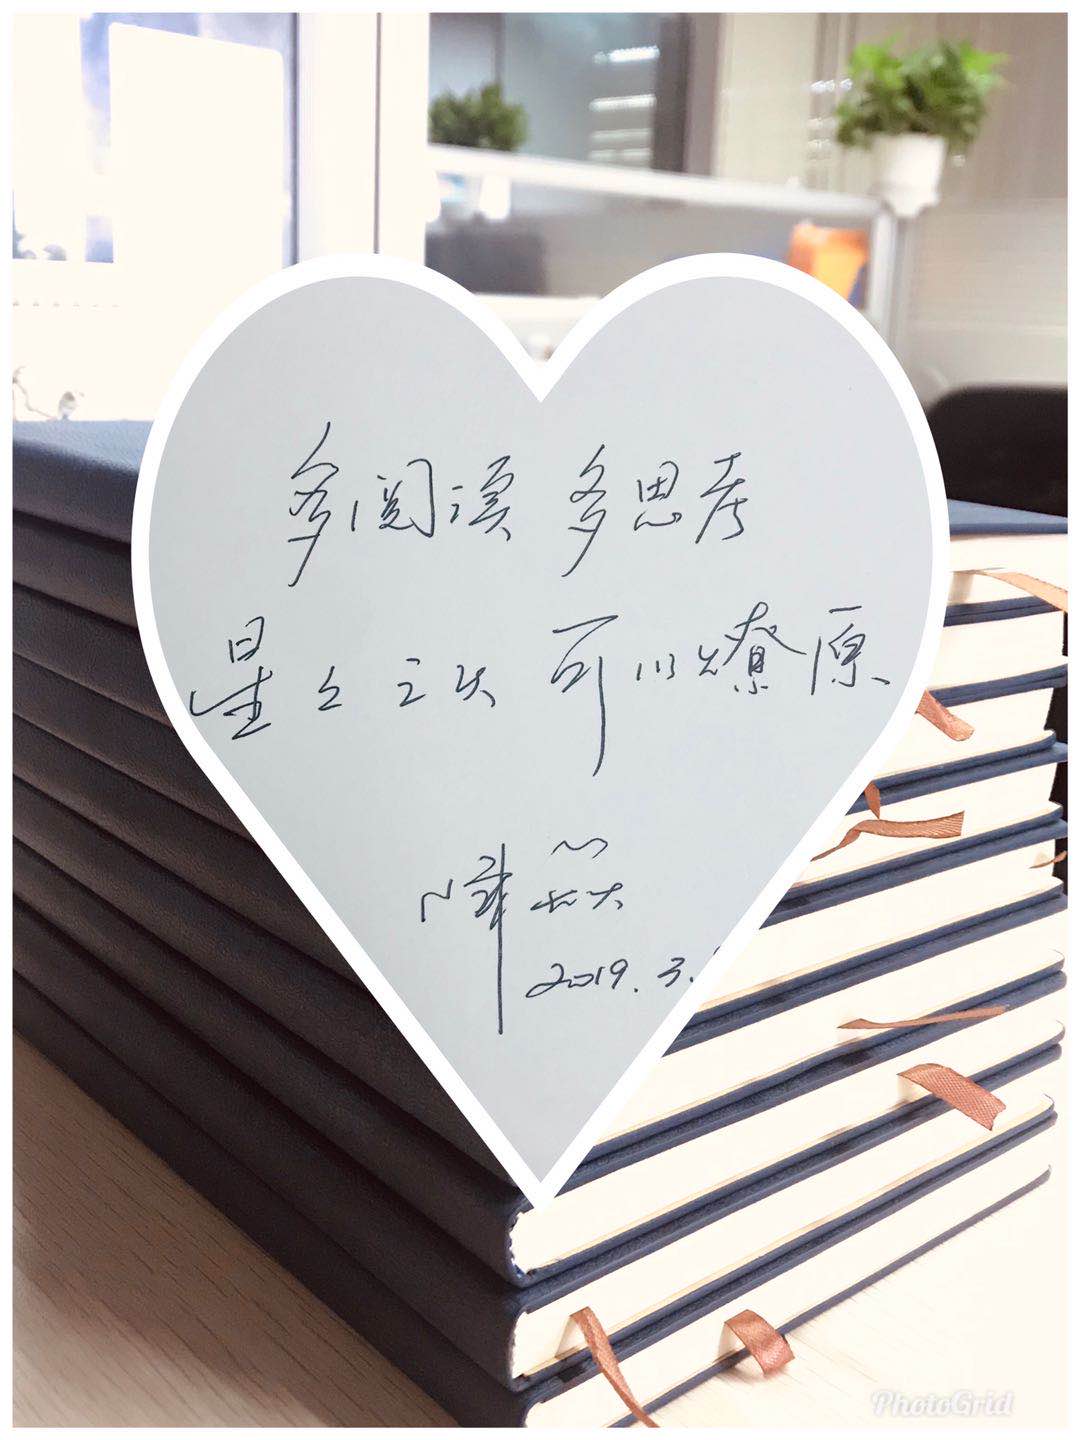 多阅读 多思考
星々之火 可以燎原
2019.3.
PhotoGrid